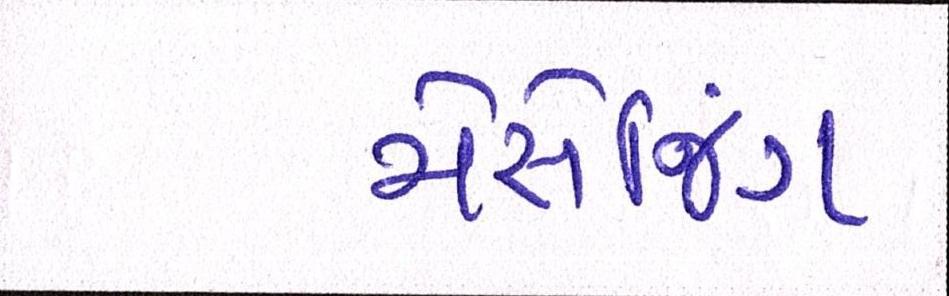 મેસેજિંગ